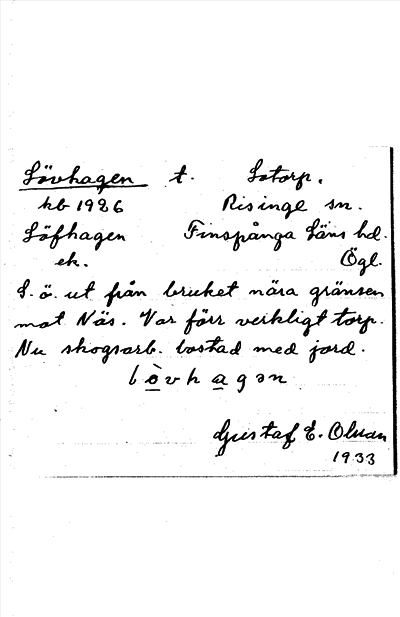 Lövhagen t. Sotorp.
kb 1926 Risinge sn.
Löfhagen Finspånga Läns hd.
ek. Ögl.
S. ö. ut från bruket nära gränsen
mot Näs. Var förr verkligt torp.
Nu skogsarb. bostad med jord.
lòvhagən
Gustaf E. Olsson
1933